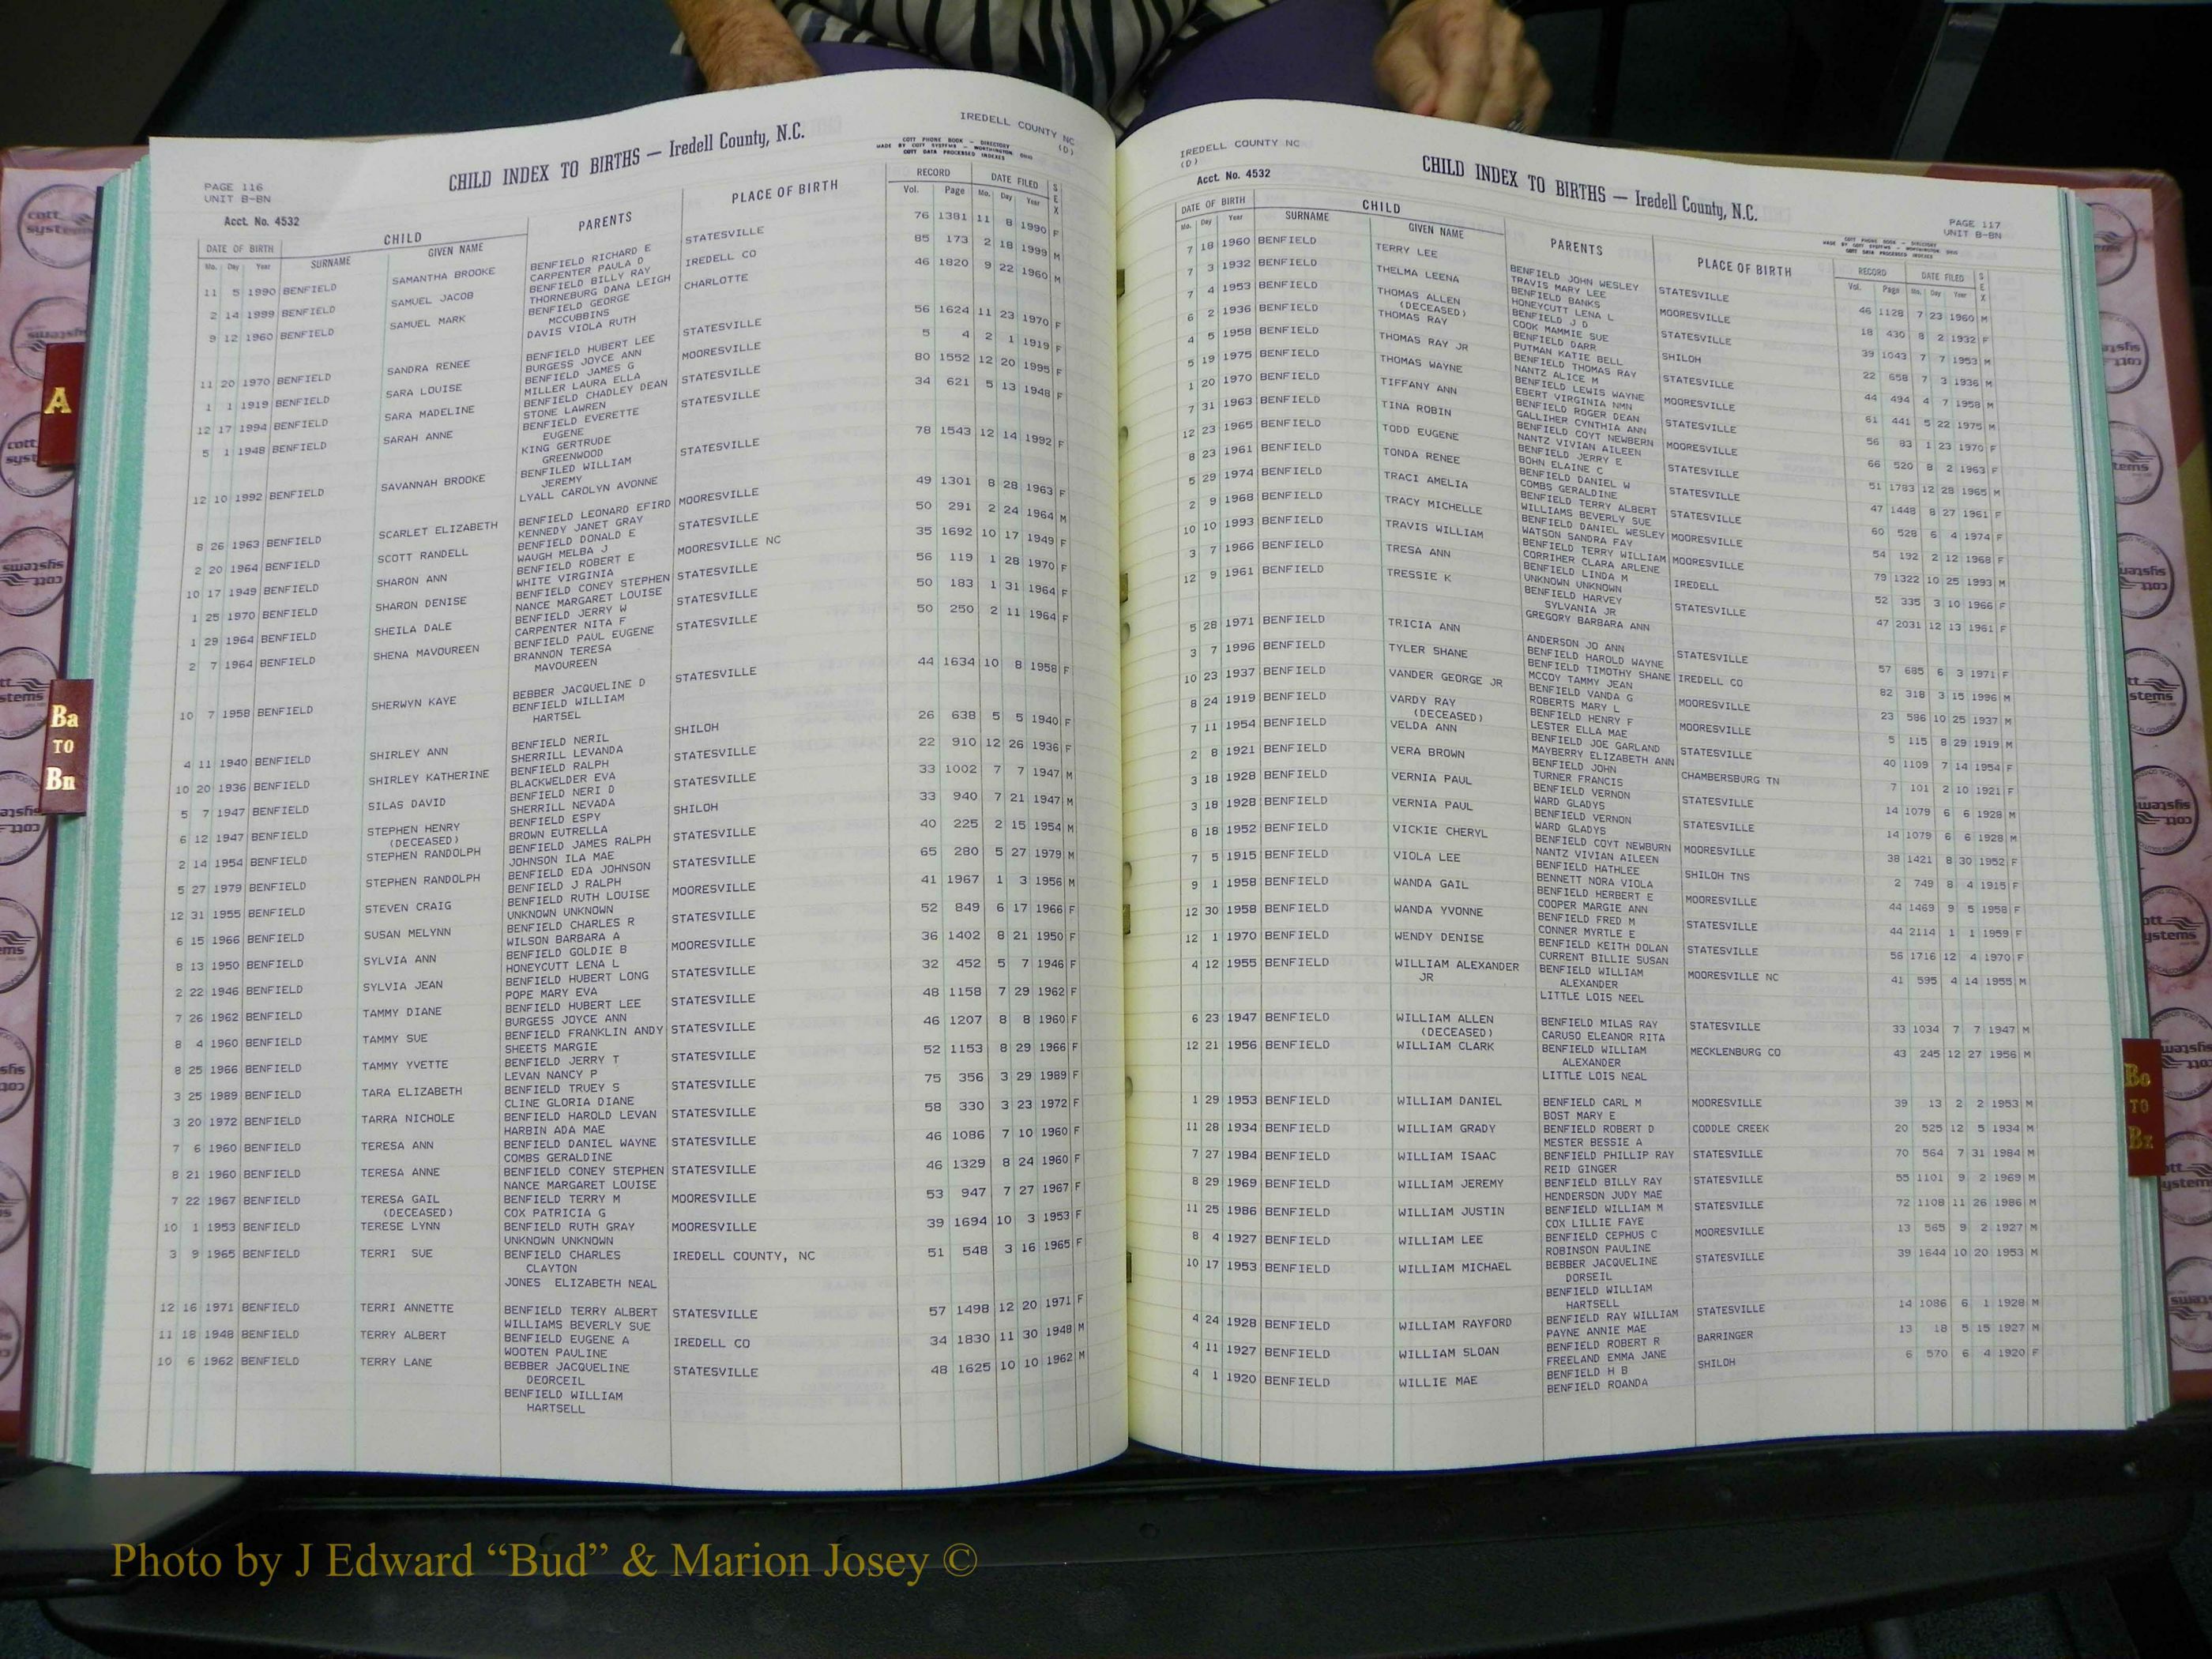 IREDELL COUNTY NC
(D)
CHILD INDEX TO BIRTHS — Iredell County, N.C.
COTT PHONE BOOK – DIRECTORY
MADE BY COTT SYSTEMS – WORTHINGTON, OHIO
COTT DATA PROCESSED INDEXES
PAGE 116
UNIT B-BN
Acct. No. 4532
DATE OF BIRTH CHILD PARENTS PLACE OF BIRTH RECORD DATE FILED SEX
Mo. Day Year SURNAME GIVEN NAME Vol. Page Mo. Day Year
11 5 1990 BENFIELD SAMANTHA BROOKE BENFIELD RICHARD E STATESVILLE 76 1381 11 8 1990 F
CARPENTER PAULA D
2 14 1999 BENFIELD SAMUEL JACOB BENFIELD BILLY RAY IREDELL CO 85 173 2 18 1999 M
THORNEBURG DANA LEIGH
9 12 1960 BENFIELD SAMUEL MARK BENFIELD GEORGE CHARLOTTE 46 1820 9 22 1960 M
MCCUBBINS
DAVIS VIOLA RUTH
11 20 1970 BENFIELD SANDRA RENEE BENFIELD HUBERT LEE STATESVILLE 56 1624 11 23 1970 F
BURGESS JOYCE ANN
1 1 1919 BENFIELD SARA LOUISE BENFIELD JAMES G MOORESVILLE 5 4 2 1 1919 F
MILLER LAURA ELLA
12 17 1994 BENFIELD SARA MADELINE BENFIELD CHADLEY DEAN STATESVILLE 80 1552 12 20 1995 F
STONE LAWREN
5 1 1948 BENFIELD SARAH ANNE BENFIELD EVERETTE STATESVILLE 34 621 5 13 1948 F
EUGENE
KING GERTRUDE
GREENWOOD
12 10 1992 BENFIELD SAVANNAH BROOKE BENFILED WILLIAM STATESVILLE 78 1543 12 14 1992 F
JEREMY
LYALL CAROLYN AVONNE
8 26 1963 BENFIELD SCARLET ELIZABETH BENFIELD LEONARD EFIRD MOORESVILLE 49 1301 8 28 1963 F
KENNEDY JANET GRAY
2 20 1964 BENFIELD SCOTT RANDELL BENFIELD DONALD E STATESVILLE 50 291 2 24 1964 M
WAUGH MELBA J
10 17 1949 BENFIELD SHARON ANN BENFIELD ROBERT E MOORESVILLE NC 35 1692 10 17 1949 F
WHITE VIRGINIA
1 25 1970 BENFIELD SHARON DENISE BENFIELD CONEY STEPHEN STATESVILLE 56 119 1 28 1970 F
NANCE MARGARET LOUISE
1 29 1964 BENFIELD SHEILA DALE BENFIELD JERRY W STATESVILLE 50 183 1 31 1964 F
CARPENTER NITA F
2 7 1964 BENFIELD SHENA MAVOUREEN BENFIELD PAUL EUGENE STATESVILLE 50 250 2 11 1964 F
BRANNON TERESA
MAVOUREEN
10 7 1958 BENFIELD SHERWYN KAYE BEBBER JACQUELINE D STATESVILLE 44 1634 10 8 1958 F
BENFIELD WILLIAM
HARTSEL
4 11 1940 BENFIELD SHIRLEY ANN BENFIELD NERIL SHILOH 26 638 5 5 1940 F
SHERRILL LEVANDA
10 20 1936 BENFIELD SHIRLEY KATHERINE BENFIELD RALPH STATESVILLE 22 910 12 26 1936 F
BLACKWELDER EVA
5 7 1947 BENFIELD SILAS DAVID BENFIELD NERI D STATESVILLE 33 1002 7 7 1947 M
SHERRILL NEVADA
6 12 1947 BENFIELD STEPHEN HENRY BENFIELD ESPY SHILOH 33 940 7 21 1947 M
(DECEASED) BROWN EUTRELLA
2 14 1954 BENFIELD STEPHEN RANDOLPH BENFIELD JAMES RALPH STATESVILLE 40 225 2 15 1954 M
JOHNSON ILA MAE
5 27 1979 BENFIELD STEPHEN RANDOLPH BENFIELD EDA JOHNSON STATESVILLE 65 280 5 27 1979 M
BENFIELD J RALPH
12 31 1955 BENFIELD STEVEN CRAIG BENFIELD RUTH LOUISE MOORESVILLE 41 1967 1 3 1956 M
UNKNOWN UNKNOWN
6 15 1966 BENFIELD SUSAN MELYNN BENFIELD CHARLES R STATESVILLE 52 849 6 17 1966 F
WILSON BARBARA A
8 13 1950 BENFIELD SYLVIA ANN BENFIELD GOLDIE B MOORESVILLE 36 1402 8 21 1950 F
HONEYCUTT LENA L
2 22 1946 BENFIELD SYLVIA JEAN BENFIELD HUBERT LONG STATESVILLE 32 452 5 7 1946 F
POPE MARY EVA
7 26 1962 BENFIELD TAMMY DIANE BENFIELD HUBERT LEE STATESVILLE 48 1158 7 29 1962 F
BURGESS JOYCE ANN
8 4 1960 BENFIELD TAMMY SUE BENFIELD FRANKLIN ANDY STATESVILLE 46 1207 8 8 1960 F
SHEETS MARGIE
8 25 1966 BENFIELD TAMMY YVETTE BENFIELD JERRY T STATESVILLE 52 1153 8 29 1966 F
LEVAN NANCY P
3 25 1989 BENFIELD TARA ELIZABETH BENFIELD TRUEY S STATESVILLE 75 356 3 29 1989 F
CLINE GLORIA DIANE
3 20 1972 BENFIELD TARRA NICHOLE BENFIELD HAROLD LEVAN STATESVILLE 58 330 3 23 1972 F
HARBIN ADA MAE
7 6 1960 BENFIELD TERESA ANN BENFIELD DANIEL WAYNE STATESVILLE 46 1086 7 10 1960 F
COMBS GERALDINE
8 21 1960 BENFIELD TERESA ANNE BENFIELD CONEY STEPHEN STATESVILLE 46 1329 8 24 1960 F
NANCE MARGARET LOUISE
7 22 1967 BENFIELD TERESA GAIL BENFIELD TERRY M MOORESVILLE 53 947 7 27 1967 F
(DECEASED) COX PATRICIA G
10 1 1953 BENFIELD TERESE LYNN BENFIELD RUTH GRAY MOORESVILLE 39 1694 10 3 1953 F
UNKNOWN UNKNOWN
3 9 1965 BENFIELD TERRI SUE BENFIELD CHARLES IREDELL COUNTY, NC 51 548 3 16 1965 F
CLAYTON
JONES ELIZABETH NEAL
12 16 1971 BENFIELD TERRI ANNETTE BENFIELD TERRY ALBERT STATESVILLE 57 1498 12 20 1971 F
WILLIAMS BEVERLY SUE
11 18 1948 BENFIELD TERRY ALBERT BENFIELD EUGENE A IREDELL CO 34 1830 11 30 1948 M
WOOTEN PAULINE
10 6 1962 BENFIELD TERRY LANE BEBBER JACQUELINE STATESVILLE 48 1625 10 10 1962 M
DEORCEIL
BENFIELD WILLIAM
HARTSELL
IREDELL COUNTY NC
(D)
Acct. No. 4532
CHILD INDEX TO BIRTHS — Iredell County, N.C.
PAGE 117
UNIT B-BN
COTT PHONE BOOK – DIRECTORY
MADE BY COTT SYSTEMS – WORTHINGTON, OHIO
COTT DATA PROCESSED INDEXES
DATE OF BIRTH CHILD PARENTS PLACE OF BIRTH RECORD DATE FILED SEX
Mo. Day Year SURNAME GIVEN NAME Vol. Page Mo. Day Year
7 18 1960 BENFIELD TERRY LEE BENFIELD JOHN WESLEY STATESVILLE 46 1128 7 23 1960 M
TRAVIS MARY LEE
7 3 1932 BENFIELD THELMA LEENA BENFIELD BANKS MOORESVILLE 18 430 8 2 1932 F
HONEYCUTT LENA L
7 4 1953 BENFIELD THOMAS ALLEN BENFIELD J D STATESVILLE 39 1043 7 7 1953 M
(DECEASED) COOK MAMMIE SUE
6 2 1936 BENFIELD THOMAS RAY BENFIELD DARR SHILOH 22 658 7 3 1936 M
PUTMAN KATIE BELL
4 5 1958 BENFIELD THOMAS RAY JR BENFIELD THOMAS RAY STATESVILLE 44 494 4 7 1958 M
NANTZ ALICE M
5 19 1975 BENFIELD THOMAS WAYNE BENFIELD LEWIS WAYNE MOORESVILLE 61 441 5 22 1975 M
EBERT VIRGINIA NMN
1 20 1970 BENFIELD TIFFANY ANN BENFIELD ROGER DEAN STATESVILLE 56 83 1 23 1970 F
GALLIHER CYNTHIA ANN
7 31 1963 BENFIELD TINA ROBIN BENFIELD COYT NEWBERN MOORESVILLE 66 520 8 2 1963 F
NANTZ VIVIAN AILEEN
12 23 1965 BENFIELD TODD EUGENE BENFIELD JERRY E STATESVILLE 51 1783 12 28 1965 M
BOHN ELAINE C
8 23 1961 BENFIELD TONDA RENEE BENFIELD DANIEL W STATESVILLE 47 1448 8 27 1961 F
COMBS GERALDINE
5 29 1974 BENFIELD TRACI AMELIA BENFIELD TERRY ALBERT STATESVILLE 60 528 6 4 1974 F
WILLIAMS BEVERLY SUE
2 9 1968 BENFIELD TRACY MICHELLE BENFIELD DANIEL WESLEY MOORESVILLE 54 192 2 12 1968 F
WATSON SANDRA FAY
10 10 1993 BENFIELD TRAVIS WILLIAM BENFIELD TERRY WILLIAM MOORESVILLE 79 1322 10 25 1993 M
CORRIHER CLARA ARLENE
3 7 1966 BENFIELD TRESA ANN BENFIELD LINDA M IREDELL 52 335 3 10 1966 F
UNKNOWN UNKNOWN
12 9 1961 BENFIELD TRESSIE K BENFIELD HARVEY STATESVILLE 47 2031 12 13 1961 F
SYLVANIA JR
GREGORY BARBARA ANN
5 28 1971 BENFIELD TRICIA ANN ANDERSON JO ANN STATESVILLE 57 685 6 3 1971 F
BENFIELD HAROLD WAYNE
3 7 1996 BENFIELD TYLER SHANE BENFIELD TIMOTHY SHANE IREDELL CO 82 318 3 15 1996 M
MCCOY TAMMY JEAN
10 23 1937 BENFIELD VANDER GEORGE JR BENFIELD VANDA G MOORESVILLE 23 586 10 25 1937 M
ROBERTS MARY L
8 24 1919 BENFIELD VARDY RAY BENFIELD HENRY F MOORESVILLE 5 115 8 29 1919 M
(DECEASED) LESTER ELLA MAE
7 11 1954 BENFIELD VELDA ANN BENFIELD JOE GARLAND STATESVILLE 40 1109 7 14 1954 F
MAYBERRY ELIZABETH ANN
2 8 1921 BENFIELD VERA BROWN BENFIELD JOHN CHAMBERSBURG TN 7 101 2 10 1921 F
TURNER FRANCIS
3 18 1928 BENFIELD VERNIA PAUL BENFIELD VERNON STATESVILLE 14 1079 6 6 1928 M
WARD GLADYS
3 18 1928 BENFIELD VERNIA PAUL BENFIELD VERNON STATESVILLE 14 1079 6 6 1928 M
WARD GLADYS
8 18 1952 BENFIELD VICKIE CHERYL BENFIELD COYT NEWBURN MOORESVILLE 38 1421 8 30 1952 F
NANTZ VIVIAN AILEEN
7 5 1915 BENFIELD VIOLA LEE BENFIELD HATHLEE SHILOH TNS 2 749 8 4 1915 F
BENNETT NORA VIOLA
9 1 1958 BENFIELD WANDA GAIL BENFIELD HERBERT E MOORESVILLE 44 1469 9 5 1958 F
COOPER MARGIE ANN
12 30 1958 BENFIELD WANDA YVONNE BENFIELD FRED M STATESVILLE 44 2114 1 1 1959 F
CONNER MYRTLE E
12 1 1970 BENFIELD WENDY DENISE BENFIELD KEITH DOLAN STATESVILLE 56 1716 12 4 1970 F
CURRENT BILLIE SUSAN
4 12 1955 BENFIELD WILLIAM ALEXANDER BENFIELD WILLIAM MOORESVILLE NC 41 595 4 14 1955 M
JR ALEXANDER
LITTLE LOIS NEEL
6 23 1947 BENFIELD WILLIAM ALLEN BENFIELD MILAS RAY STATESVILLE 33 1034 7 7 1947 M
(DECEASED) CARUSO ELEANOR RITA
12 21 1956 BENFIELD WILLIAM CLARK BENFIELD WILLIAM MECKLENBURG CO 43 245 12 27 1956 M
ALEXANDER
LITTLE LOIS NEAL
1 29 1953 BENFIELD WILLIAM DANIEL BENFIELD CARL M MOORESVILLE 39 13 2 2 1953 M
BOST MARY E
11 28 1934 BENFIELD WILLIAM GRADY BENFIELD ROBERT D CODDLE CREEK 20 525 12 5 1934 M
MESTER BESSIE A
7 27 1984 BENFIELD WILLIAM ISAAC BENFIELD PHILLIP RAY STATESVILLE 70 564 7 31 1984 M
REID GINGER
8 29 1969 BENFIELD WILLIAM JEREMY BENFIELD BILLY RAY STATESVILLE 55 1101 9 2 1969 M
HENDERSON JUDY MAE
11 25 1986 BENFIELD WILLIAM JUSTIN BENFIELD WILLIAM M STATESVILLE 72 1108 11 26 1986 M
COX LILLIE FAYE
8 4 1927 BENFIELD WILLIAM LEE BENFIELD CEPHUS C MOORESVILLE 13 565 9 2 1927 M
ROBINSON PAULINE
10 17 1953 BENFIELD WILLIAM MICHAEL BEBBER JACQUELINE STATESVILLE 39 1644 10 20 1953 M
DORSEIL
BENFIELD WILLIAM
HARTSELL
4 24 1928 BENFIELD WILLIAM RAYFORD BENFIELD RAY WILLIAM STATESVILLE 14 1086 6 1 1928 M
PAYNE ANNIE MAE
4 11 1927 BENFIELD WILLIAM SLOAN BENFIELD ROBERT R BARRINGER 13 18 5 15 1927 M
FREELAND EMMA JANE
4 1 1920 BENFIELD WILLIE MAE BENFIELD H B SHILOH 6 570 6 4 1920 F
BENFIELD ROANDA
A
Ba
TO
Bn
Bo
TO
Bz
cott
systems
Photo by J Edward “Bud” & Marion Josey ©